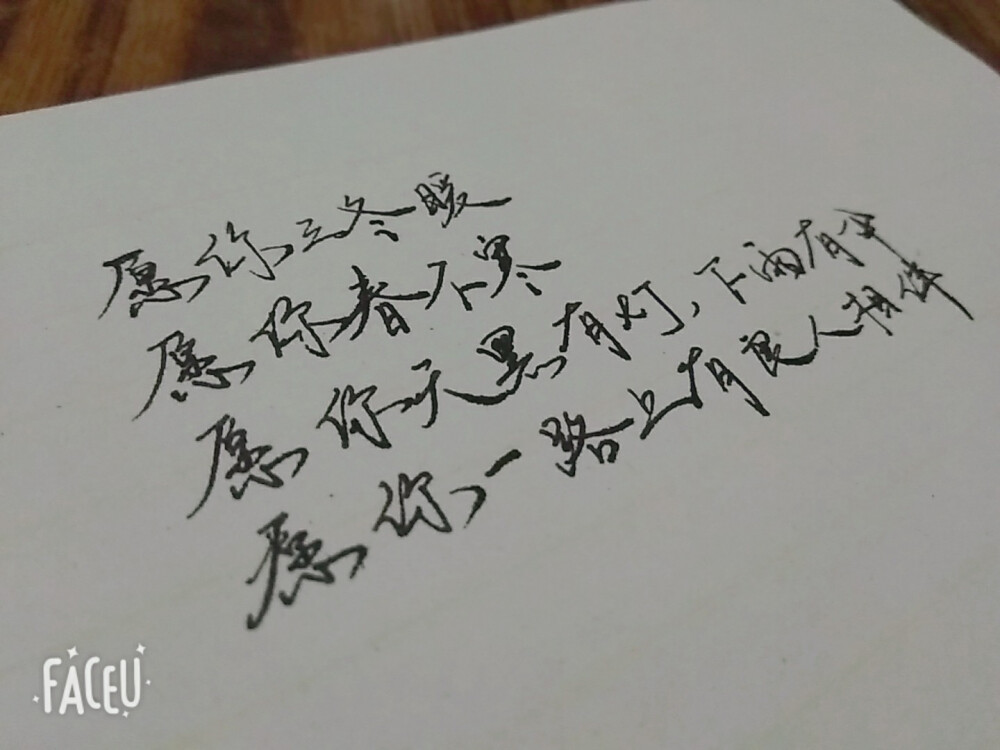 愿你三冬暖
愿你春不寒
愿你天黑有灯,下雨有伞
愿你一路上有良人相伴
FACEU